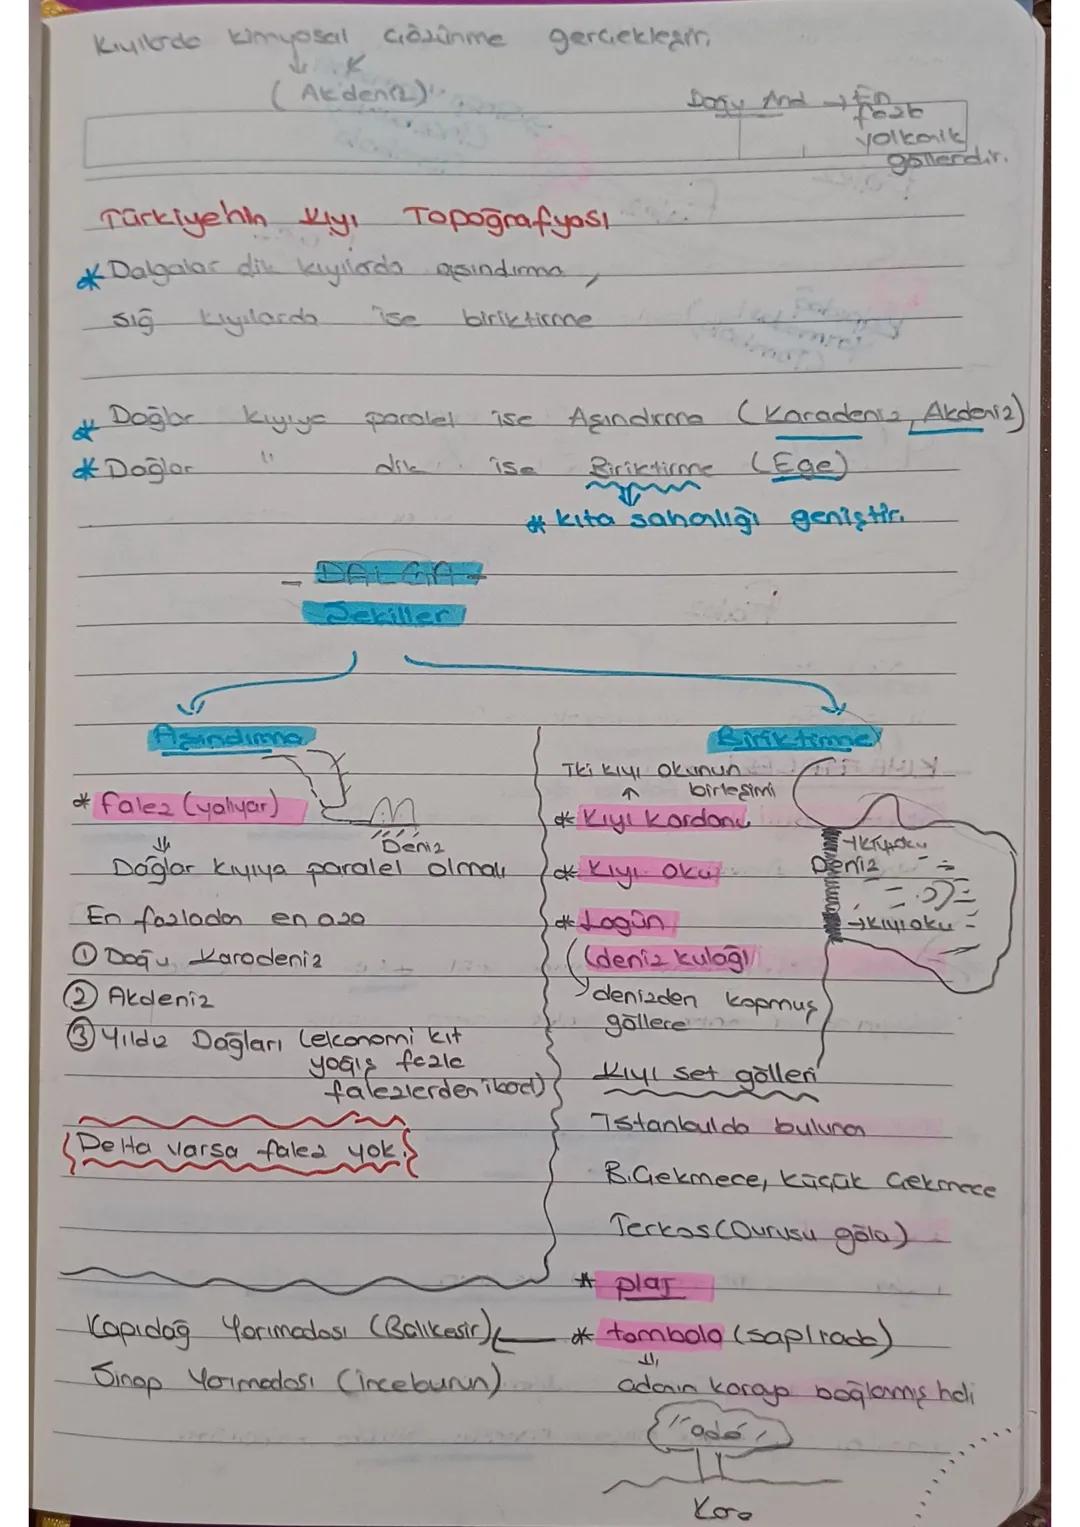 Kıyılarda kimyasal çözünme gerçekleşir.
(Akdeniz)
Doğu And → En
fazla
volkanik
göllerdir.
Türkiyenin Kıyı Topoğrafyası
* Dalgalar dik kıyılarda aşındırma,
sığ kıyılarda ise biriktirme
* Dağlar kıyıya paralel ise Aşındırma (Karadeniz, Akdeniz)
* Dağlar " dik ise Biriktirme (Ege)
* kıta sahanlığı geniştir.
- DALGA -
Şekiller
Aşındırma
* falez (yalıyar)
Deniz
Dağlar kıyıya paralel olmalı
En fazladan en aza
① Doğu Karadeniz
② Akdeniz
③ Yıldız Dağları (ekonomi kıt
yağış fazla
falezlerden
Delta varsa falez yok.
Biriktirme
İki kıyı okunun
birleşimi
* Kıyı Kordonu
* Kıyı Oku
* Lagün
(deniz kulağı)
denizden kopmuş
göllere
→ kıyıoku
Deniz
→ kıyıoku
Kıyı set gölleri
İstanbulda bulunan
B.Çekmece, Küçük Çekmece
Terkos (Durusu gölü)
* plaj
* tombolo (saplıada)
adanın karaya bağlamış hali
ada
Kara
Kapıdağ Yarımadası (Balıkesir)
Sinop Yarımadası (inceburun)